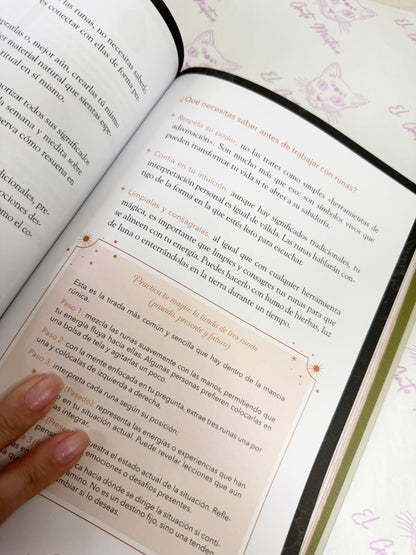 las runas, no necesitas saberlo
es conectar con ellas de forma per-
prarlas o, mejor aún, crearlas tú mismo
er material natural, que sientas espe-
ritual en sí mismo.
orizar todos sus significados
la semana y medita sobre
serva cómo resuena en
dicionales, pre-
ociones des-
omo el co-
¿Qué necesitas saber antes de trabajar con runas?
• Respeta su poder: no las trates como simples «herramientas de
adivinación». Son mucho más que eso: son símbolos vivos que
pueden transformar tu vida si te abres a su sabiduría.
• Confía en tu intuición: aunque hay significados tradicionales, tu
interpretación personal es igual de válida. Las runas hablarán con-
tigo de la forma en la que estés listo para escuchar.
• Límpialas y conságralas: al igual que con cualquier herramienta
mágica, es importante que limpies y consagres tus runas para que
se alineen con tu energía. Puedes hacerlo con humo de hierbas, luz
de luna o enterrándolas en la tierra durante un tiempo.
Practica tu magia: la tirada de tres runas
(pasado, presente y futuro)
Esta es la tirada más común y sencilla que hay dentro de la mancia
rúnica.
Paso 1: mezcla las runas suavemente con las manos, permitiendo que
tu energía fluya hacia ellas. Algunas personas prefieren colocarlas en
una bolsa de tela y agitarlas un poco.
Paso 2: con la mente enfocada en tu pregunta, extrae tres runas una por
una y colócalas de izquierda a derecha.
Paso 3: interpreta cada runa según su posición:
(Pasado): representa las energías o experiencias que han
en tu situación actual. Puede revelar lecciones que aún
as integrar.
(Presente): muestra el estado actual de la situación. Refle-
emociones o desafíos presentes.
ca hacia dónde se dirige la situación si conti-
No es un destino fijo, sino una tenden-
mbiar si lo deseas.
El Gato Mystic